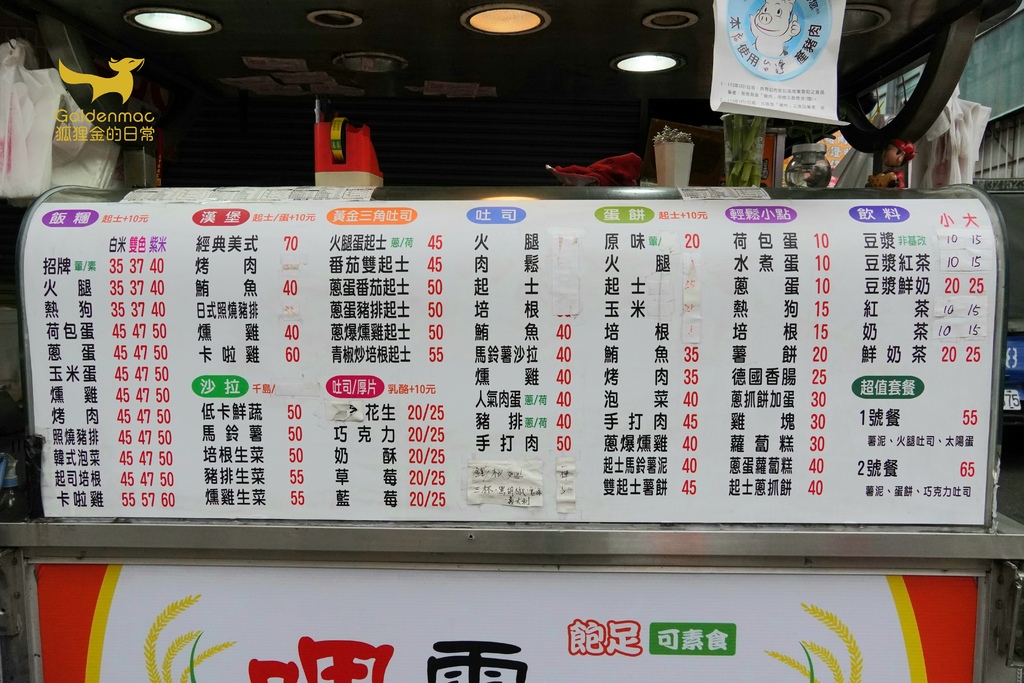 Goldenmac
狐狸金的日常
本店使用
台灣
產豬肉
飯糰 起士+10元
白米 雙色 紫米
招牌 葷/素 35 37 40
火腿 35 37 40
熱狗 35 37 40
荷包蛋 45 47 50
蔥蛋 45 47 50
玉米蛋 45 47 50
燻雞 45 47 50
烤肉 45 47 50
照燒豬排 45 47 50
韓式泡菜 45 47 50
起司培根 45 47 50
卡啦雞 55 57 60
漢堡 起士/蛋+10元
經典美式 70
烤肉
鮪魚 40
日式照燒豬排
燻雞 40
卡啦雞 60
沙拉 千島/
低卡鮮蔬 50
馬鈴薯 50
培根生菜 50
豬排生菜 55
燻雞生菜 55
黃金三角吐司
火腿蛋起士 蔥/荷 45
番茄雙起士 45
蔥蛋番茄起士 50
蔥蛋豬排起士 50
蔥爆燻雞起士 50
青椒炒培根起士 55
吐司/厚片 乳酪+10元
花生 20/25
巧克力 20/25
奶酥 20/25
草莓 20/25
藍莓 20/25
吐司
火腿
肉鬆
起士
培根
鮪魚 40
馬鈴薯沙拉 40
燻雞 40
人氣肉蛋 蔥/荷 40
豬排 蔥/荷 40
手打肉 50
蛋餅 起士+10元
原味 葷/ 20
火腿
起士
玉米
培根
鮪魚 35
烤肉 35
泡菜 40
手打肉 45
蔥爆燻雞 40
起士馬鈴薯泥 40
雙起士薯餅 45
輕鬆小點
荷包蛋 10
水煮蛋 10
蔥蛋 10
熱狗 15
培根 15
薯餅 20
德國香腸 25
蔥抓餅加蛋 30
雞塊 30
蘿蔔糕 30
蔥蛋蘿蔔糕 40
起士蔥抓餅 40
飲料 小 大
豆漿 非基改 10 15
豆漿紅茶 10 15
豆漿鮮奶 20 25
紅茶 10 15
奶茶 10 15
鮮奶茶 20 25
超值套餐
1號餐 55
薯泥、火腿吐司、太陽蛋
2號餐 65
薯泥、蛋餅、巧克力吐司
飽足 可素食